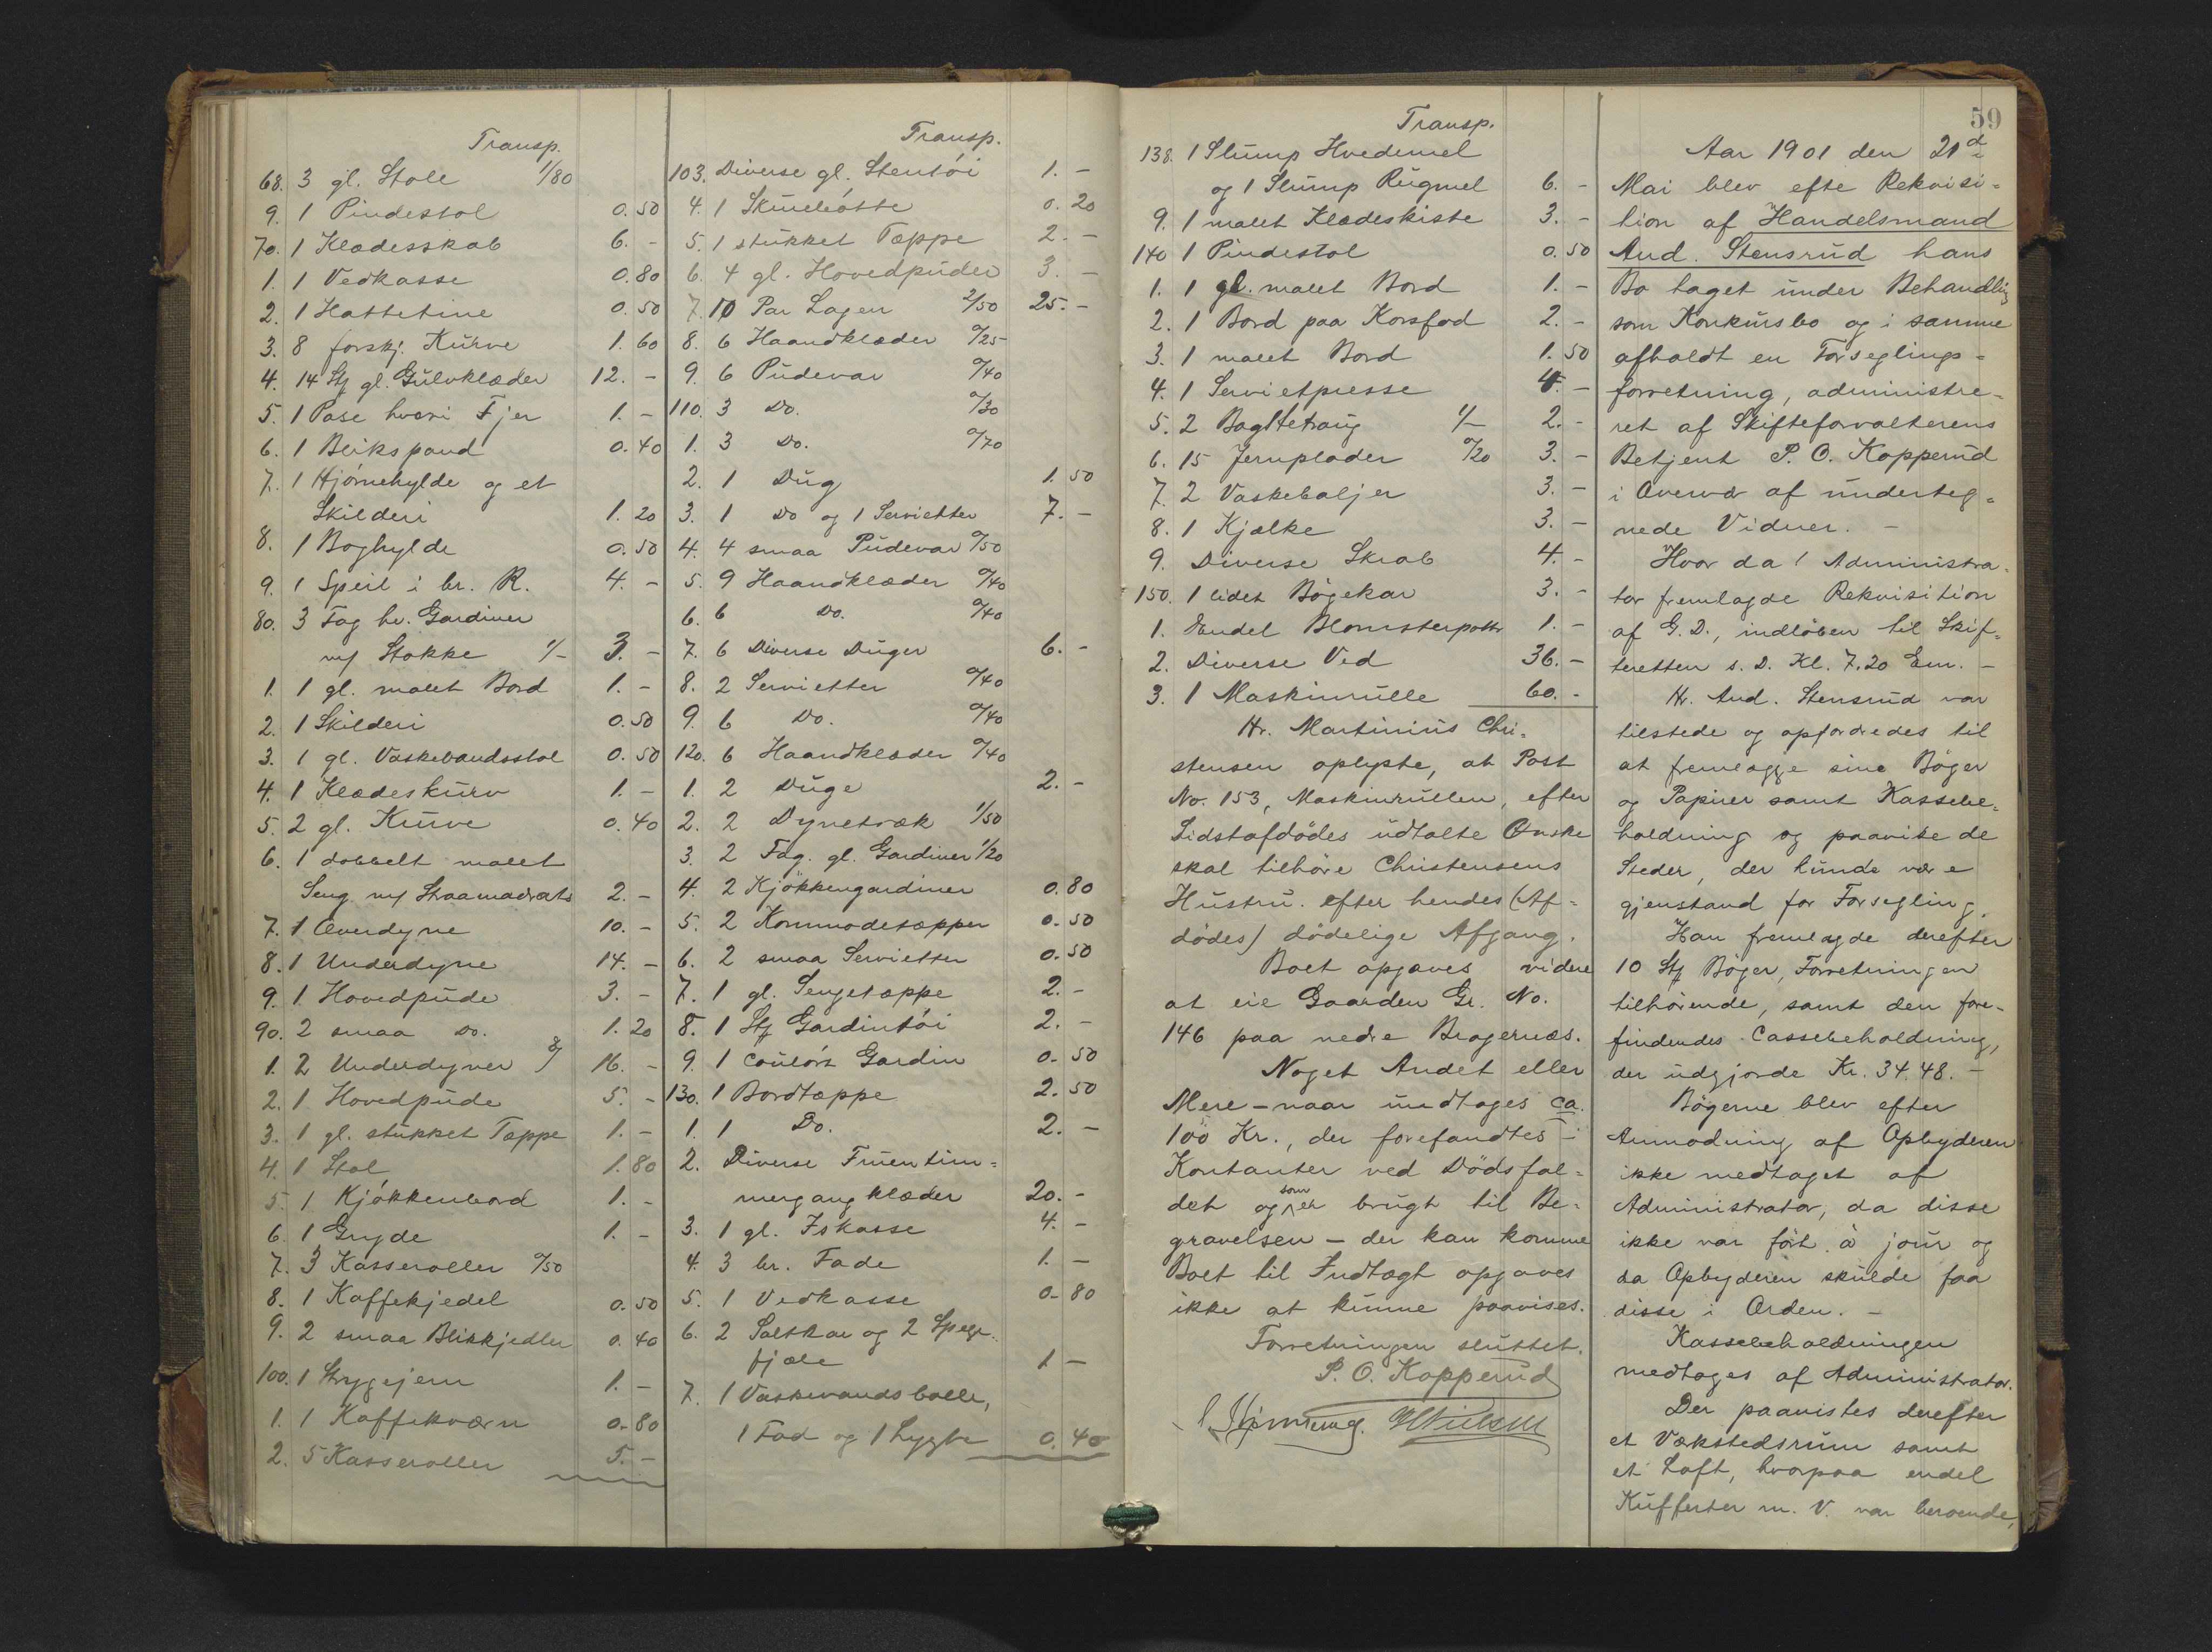 Transp.
68. 3 gl. Stole 1/80
9. 1 Pindestol 0.50
70. 1 Klædesskab 6. -
1. 1 Vedkasse 0.80
2. 1 Hattetine 0.50
3. 8 forskj. Kurve 1.60
4. 14 Stj gl. Gulvklæder 12. -
5. 1 Pose hvori Fjer 1. -
6. 1 Blikspand 0.40
7. 1 Hjörnehylde og et
Skilderi 1.20
8. 1 Boghylde 0.50
9. 1 Speil i br. R. 4. -
80. 3 Fag hv. Gardiner
m/ Stokke 1/- 3. -
1. 1 gl. malet Bord 1. -
2. 1 Skilderi 0.50
3. 1 gl. Vaskevandsstol 0.50
4. 1 Klædeskurv 1. -
5. 2 gl. Kurve 0.40
6. 1 dobbelt malet
Seng m/ Straamadrats 2. -
7. 1 Overdyne 10. -
8. 1 Underdyne 14. -
9. 1 Hovedpude 3. -
90. 2 smaa Do. 1.20
1. 2 Underdyner 8/ 16. -
2. 1 Hovedpude 5. -
3. 1 gl. stukket Tæppe 1. -
4. 1 Stol 1.80
5. 1 Kjökkenbord 1. -
6. 1 Gryde 1. -
7. 3 Kasseroller 0/50
8. 1 Kaffekjedel 0.50
9. 2 smaa Blikkjedler 0.40
100. 1 Strygejern 1. -
1. 1 Kaffekværn 0.80
2. 5 Kasseroller 5. -
Transp.
103. Diverse gl. Stentöi 1. -
4. 1 0.20
5. 1 stukket Tæppe 2. -
6. 4 gl. Hovedpuder 3. -
7. 10 Par Lagen 2/50 25. -
8. 6 Haandklæder 0/25
9. 6 Pudevar 0/40
110. 3 Do. 0/30
1. 3 Do. 0/70
2. 1 Dug 1.50
3. 1 Do og 1 Servietter 7. -
4. 4 smaa Pudevar 0/50
5. 9 Haandklæder 0/40
6. 6 Do. 0/40
7. 6 Diverse Duger 6. -
8. 2 Servietter 0/40
9. 6 Do. 0/40
120. 6 Haandklæder 0/40
1. 2 Duge 2. -
2. 2 Dynetræk 1/50
3. 2 Fag. gl. Gardiner 1/20
4. 2 Kjökkengardiner 0.80
5. 2 Kommodetæpper 0.50
6. 2 smaa Servietter 0.50
7. 1 gl. Sengetæppe 2. -
8. 1 Stj Gardintöi 2. -
9. 1 coulört Gardin 0.50
130. 1 Bordtæppe 2.50
1. 1 Do. 2. -
2. Diverse Fruentim=
mergangklæder 20. -
3. 1 gl. Iskasse 4. -
4. 3 br. Fade 1. -
5. 1 Vedkasse 0.80
6. 2 Saltkar og 2
fjæle 1 -
7. 1 Vaskevandsbolle,
1 Fad og 1 Lygte 0.40
Transp.
138. 1 Slump Hvedemel
og 1 Slump Rugmel 6. -
9. 1 malet Klædeskiste 3. -
140 1 Pindestol 0.50
1. 1 gl. malet Bord 1. -
2. 1 Bord paa Korsfod 2. -
3. 1 malet Bord 1.50
4. 1 Servietpresse 4. -
5. 2 Bagstetraug 1/- 2. -
6. 15 Jernplader 0/20 3. -
7. 2 Vaskebaljer 3. -
8. 1 Kjælke 3. -
9. Diverse Skrab 4. -
150. 1 lidet Bögekar 3. -
1. Endel Blomsterpotter 1. -
2. Diverse Ved 36. -
3. 1 Maskinrulle 60. -
Hr. Martinius Chri=
stensen oplyste, at Post
No. 153, Maskinrullen, efter
Sidstafdödes udtalte Önske
skal tilhöre Christensens
Hustru efter hendes (Af=
dödes) dödelige Afgang.
Boet opgaves videre
at eie Gaarden Gr. No.
146 paa nedre Bragernæs.
Noget Andet eller
Mere - naar undtages ca.
100 Kr., der forefandtes i
Kontanter ved Dödsfal=
det og som er brugt til Be=
gravelsen - der kan komme
Boet til Indtægt opgaves
ikke at kunne paavises.
Forretningen sluttet.
P. O. Kopperud
HNielsen
59
Aar 1901 den 21d
Mai blev efte Rekvisi=
tion af Handelsmand
And. Stensrud hans
Bo taget under Behandling
som Konkursbo og i samme
afholdt en Forseglings=
forretning, administre=
ret af Skifteforvalterens
Betjent P. O. Kopperud
i Overvær af underteg=
nede Vidner. -
Hvor da! Administra=
tor fremlagde Rekvisition
af G. D., indlöben til Skif=
teretten s. D. Kl. 7.20 Em. -
Hr. And. Stensrud var
tilstede og opfordredes til
at fremlægge sine Böger
og Papirer samt Kassebe=
holdning og paavise de
Steder, der kunde være
gjenstand for Forsegling.
Han fremlagde derefter
10 Stj Böger, Forretningen
tilhörende, samt den fore=
findendes Cassebeholdning,
der udgjorde Kr. 34.48. -
Bögerne blev efter
Anmodning af Opbyderen
ikke medtaget af
Administrator, da disse
ikke var fört à jour og
da Opbyderen skulde faa
disse i Orden. -
Kassebeholdningen
medtoges af Administrator.
Der paavistes derefter
et Værkstedsrum samt
et Loft, hvorpaa endel
Kufferter m. V. var beroende,